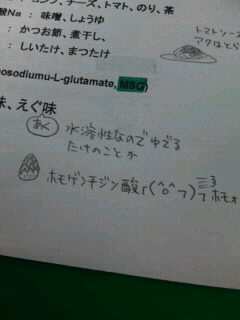 コンブ、チーズ、トマト、のり、茶
酸Na : 味噌、しょうゆ
: かつお節、煮干し、
: しいたけ、まつたけ
トマトソース
アクはとら
osodiumu-L-glutamate, MSG)
味、えぐ味
あく 水溶性なのでゆでる
たけのことか
ホモゲンチジン酸r(^o^フ) 三フ ホモォ